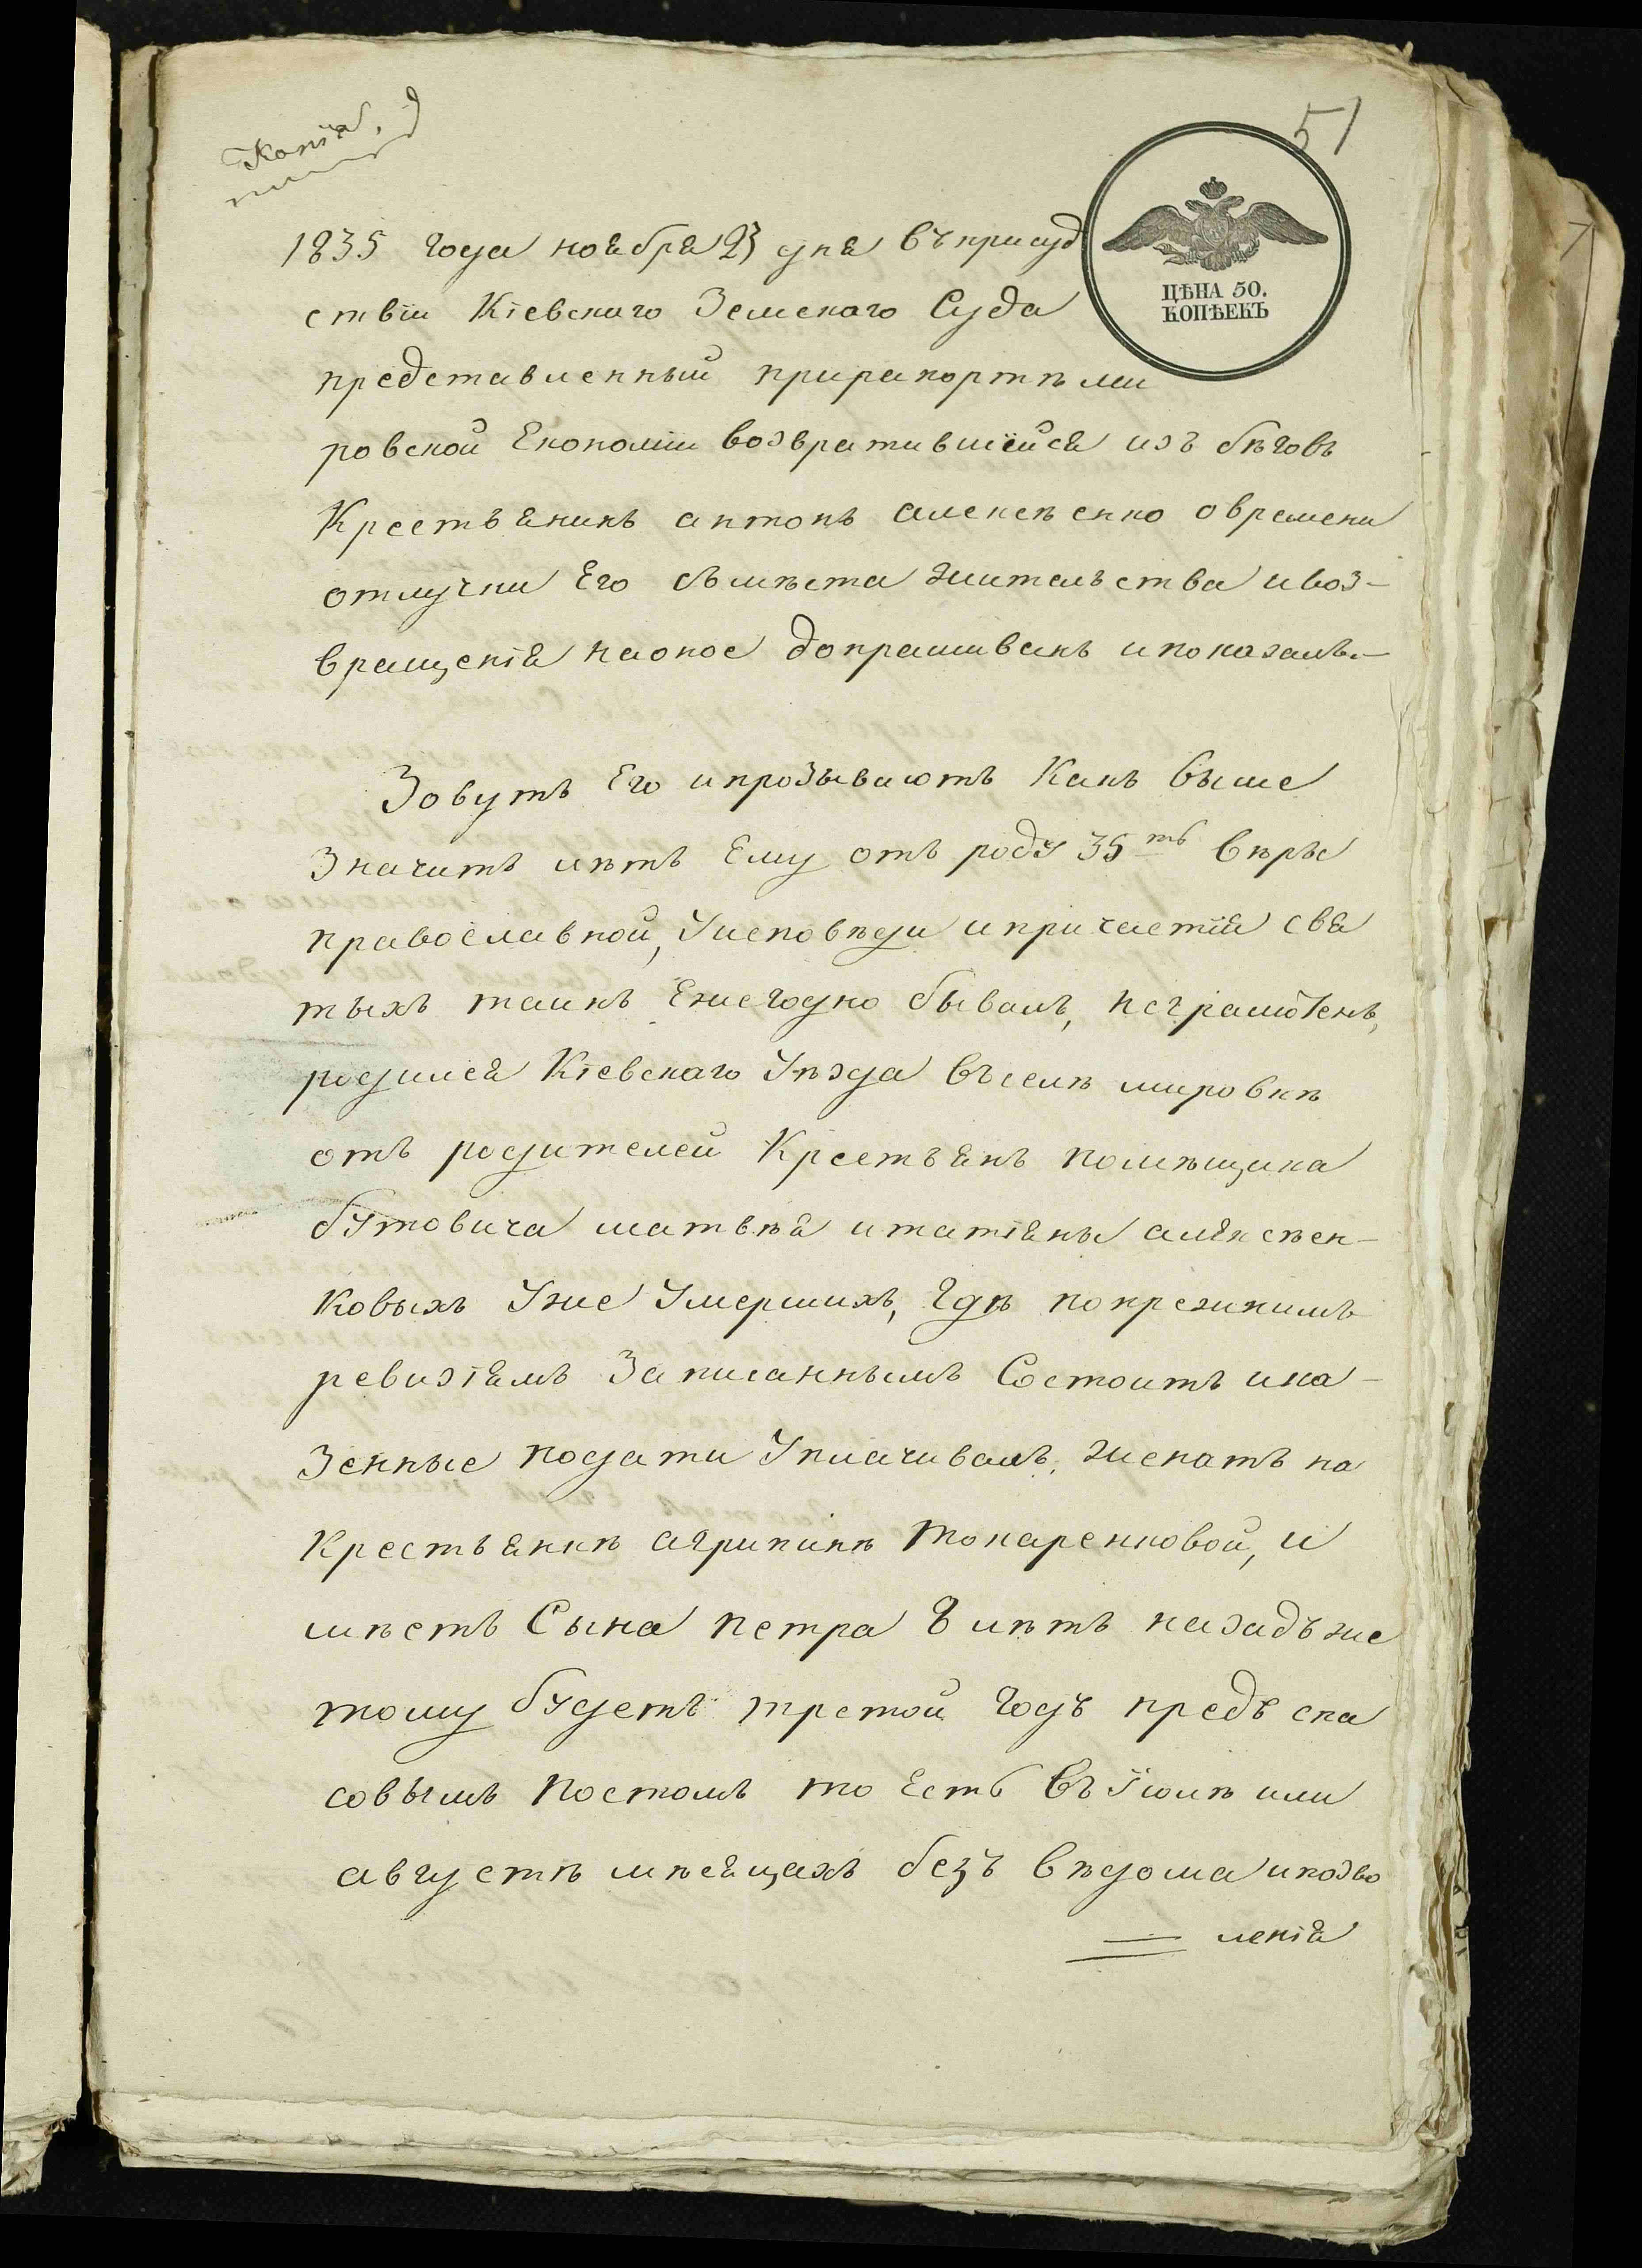 Копїа.
51
ЦѢНА 50.
КОПѢЕКЪ
1835 года ноября 23 дня въ присуд
ствїи Кїевскаго Земскаго Суда
представленный прирапортѣ ми
ровской Економїи возвратившїйся изъ бѣговъ
Крестьянинъ антонъ алексѣенко овремени
отлучки Его сьмѣста жительства ивоз-
вращенїя наоное допрашиванъ ипоказалъ.-
Зовутъ Его ипрозываютъ Какъ выше
Значитъ лѣтъ Ему отъ роду 35ть вѣры
православной, Уисповѣди ипричастїя свя
тыхъ таинъ Ежегодно бывалъ, неграмотенъ,
родился Кїевскаго Уѣзда въселѣ мировкѣ
отъ родителей Крестьянъ помѣщика
бутовича матвѣя итатїяны алексѣен-
Ковыхъ Уже Умершихъ, Гдѣ попрежнимъ
ревизїямъ Записаннымъ Состоитъ ика-
Зенные подати Уплачивалъ, женатъ на
Крестьянкѣ агрипинѣ токаренковой, и
имѣетъ Сына петра 8 лѣтъ назадъ же
тому будетъ третой годъ предъ спа
совымъ постомъ то Есть въ їюлѣ или
августѣ мѣсяцахъ безъ вѣдома ипозво
ленїя